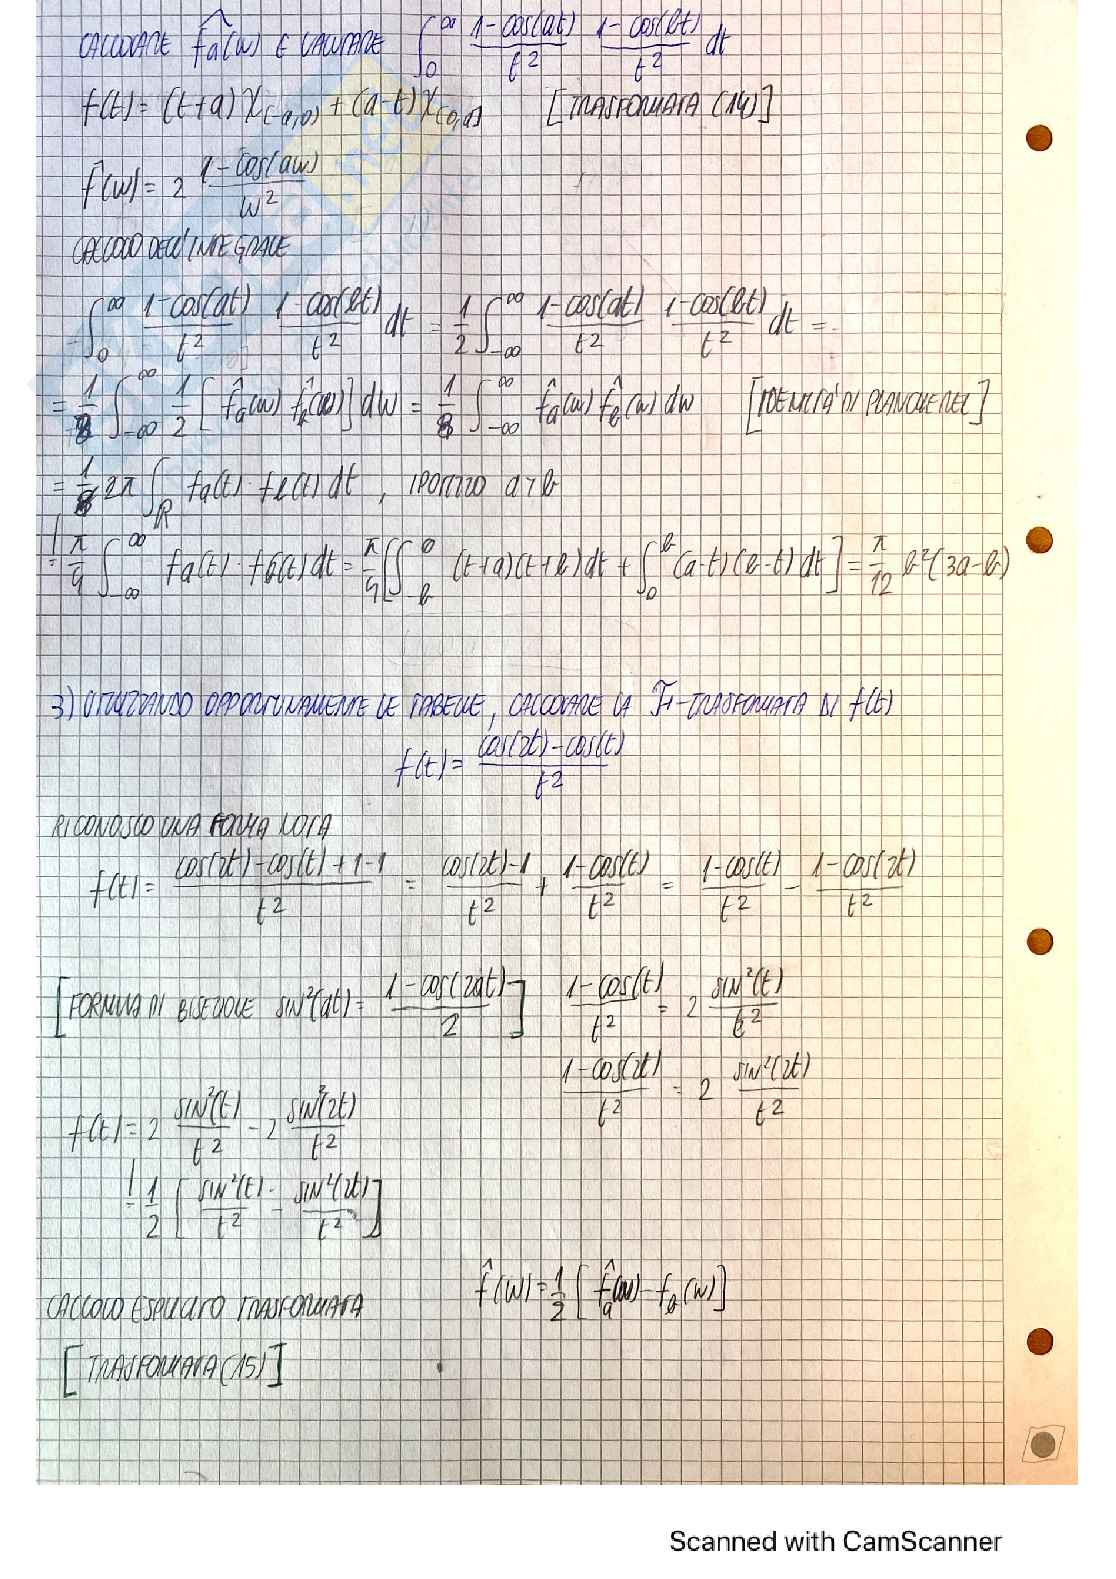 CALCOLARE f̂a(w) E CALCOLARE ∫₀^∞ (1-cos(at))/t² (1-cos(bt))/t² dt
f(t) = (t+a) χ(-a,0) + (a-t) χ(0,a) [TRASFORMATA (14)]
f̂(w) = 2 (1-cos(aw))/w²
CALCOLO DELL'INTEGRALE
∫₀^∞ (1-cos(at))/t² (1-cos(bt))/t² dt = 1/2 ∫₋∞^∞ (1-cos(at))/t² (1-cos(bt))/t² dt =
= 1/2 ∫₋∞^∞ 1/2 [f̂a(w) f̂b(w)] dw = 1/8 ∫₋∞^∞ f̂a(w) f̂b(w) dw [IDENTITA' DI PLANCHEREL]
= 1/8 2π ∫_R fa(t) · fb(t) dt, IPOTIZZO a>b
= π/4 ∫₋∞^∞ fa(t) · fb(t) dt = π/4 [∫₋b^0 (t+a)(t+b) dt + ∫₀^b (a-t)(b-t) dt] = π/12 b²(3a-b)
3) UTILIZZANDO OPPORTUNAMENTE LE TABELLE, CALCOLARE LA F-TRASFORMATA DI f(t)
f(t) = (cos(2t)-cos(t))/t²
RICONOSCO UNA FORMA NOTA
f(t) = (cos(2t)-cos(t)+1-1)/t² = (cos(2t)-1)/t² + (1-cos(t))/t² = (1-cos(t))/t² - (1-cos(2t))/t²
[FORMULA DI BISEZIONE sin²(at) = (1-cos(2at))/2] (1-cos(t))/t² = 2 sin²(t)/t²
(1-cos(2t))/t² = 2 sin²(2t)/t²
f(t) = 2 sin²(t)/t² - 2 sin²(2t)/t²
= 1/2 [sin²(t)/t² - sin²(2t)/t²]
CALCOLO ESPLICITO TRASFORMATA f̂(w) = 1/2 [f̂a(w) - fb(w)]
[TRASFORMATA (15)]
Scanned with CamScanner